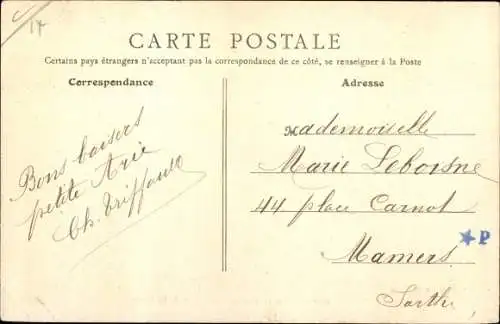 17
CARTE POSTALE
Certains pays étrangers n'acceptant pas la correspondance de ce côté, se renseigner à la Poste
Correspondance
Bons baisers
petite Arie
Ch. Triffault
Adresse
Mademoiselle
Marie Leborgne
44 place Carnot
Mamers
Sarthe
P